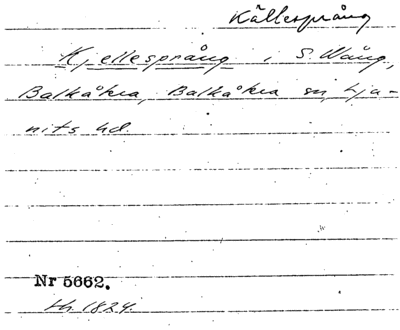 Källesprång
Kjellesprång i S. Wång,
Balkåkra, Balkåkra sn, Lju-
nits hd.
Nr 5662.
LH. 1824.